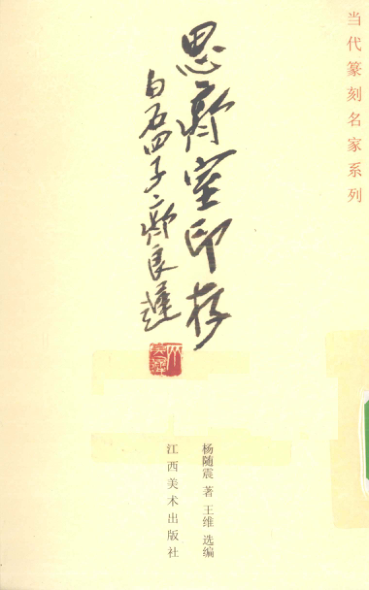 当代篆刻名家系列
思齊室印存
白石四子齊良遲
杨随震 著 王维 选编
江西美术出版社